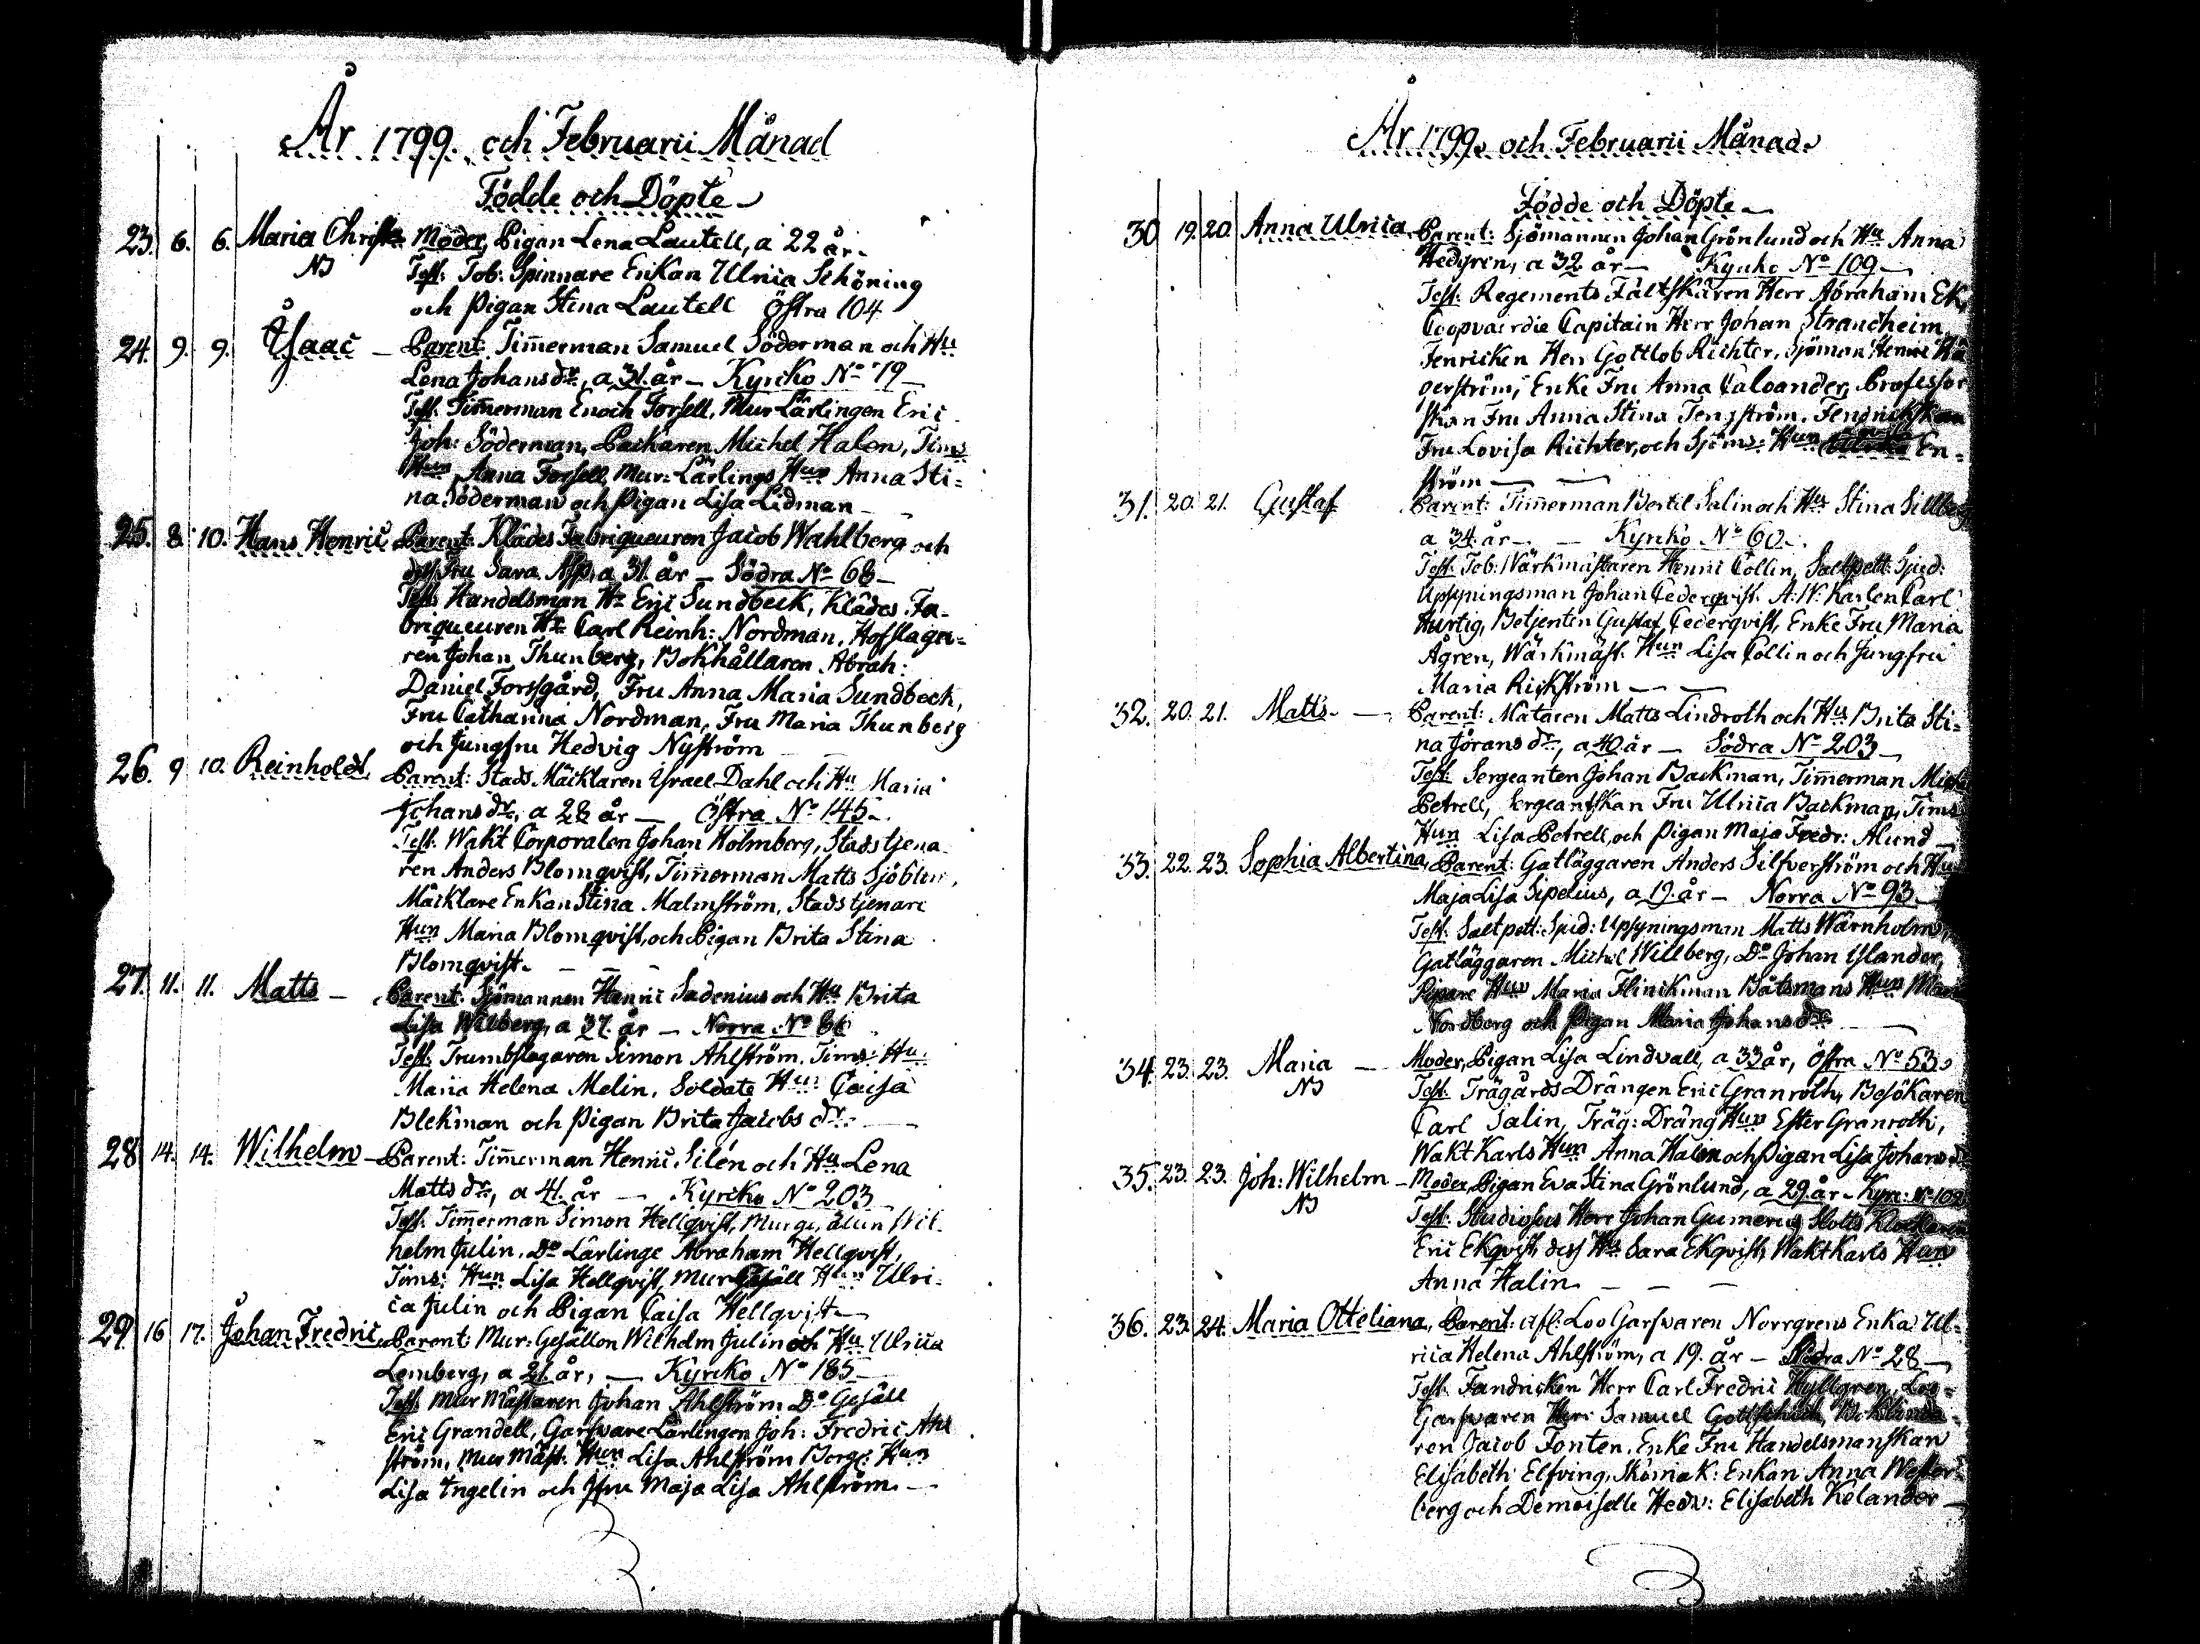 År 1799. och Februarii Månad
Födde och Döpte
23. 6. 6. Maria Christ: Moder, Pigan Lena Lautell, a 22 år.
NB Test: Tob: Spinnare Enkan Ulrica Schöning
och Pigan Stina Lautell Östra 104
24. 9. 9. Isaac Parent: Timmerman Samuel Söderman och Hu
Lena Johans dr, a 31. år Kyrko No 19
Test: Timmerman Enoch Forsell, Mur Lärlingen Eric
Joh: Söderman, Packaren Michel Halen, Tims
Hun Anna Forsell, Mur: Lärlings Hun Anna Sti=
na Söderman och Pigan Lisa Lidman
25. 8. 10. Hans Henric Parent: Klädes Fabriqueuren Jacob Wahlberg och
dess Fru Sara Asp, a 31. år Södra No 68
Test: Handelsman Hr Eric Sundbeck, Klädes Fa=
briqueuren Hr Carl Reinh: Nordman, Hofslaga=
ren Johan Thunberg, Bokhållaren Abrah:
Daniel Forssgård, Fru Anna Maria Sundbeck,
Fru Catharina Nordman, Fru Maria Thunberg
och Jungfru Hedvig Nyström
26. 9 10. Reinholdt Parent: Stads Mäcklaren Israel Dahl och Hu Maria
Johans dr, a 28 år Östra No 145
Test: Wakt Corporalen Johan Holmberg, Stadstjena=
ren Anders Blomqvist, Timmerman Matts Sjöblom,
Mäcklare Enkan Stina Malmström, Stadstjenare
Hun Maria Blomqvist, och Pigan Brita Stina
Blomqvist.
27. 11. 11. Matts Parent: Sjömannen Henric Sadenius och Hu Brita
Lisa Wilberg, a 37. år Norra No
Test: Trumbslagaren Simon Ahlström, Tims: Hu:
Maria Helena Melin, Soldats Hun Caisa
Blekman och Pigan Brita Jacobs dr.
28 14. 14. Wilhelm Parent: Timmerman Henric Silén och Hu Lena
Matts dr, a 41. år Kyrko No 203
Test: Timmerman Simon Hellqvist, Murge älln Wil=
helm Julin, Do Lärlinge Abraham Hellqvist,
Tims: Hun Lisa Hellqvist, Mur Gesäll Hun Ulri=
ca Julin och Pigan Caisa Hellqvist
29. 16 17. Johan Fredric Parent: Mur: Gesällen Wilhelm Julin och Hu Ulrica
Lemberg, a 21 år, Kyrko No 185
Test: Mur Mästaren Johan Ahlström Do Gesäll
Eric Grandell, Garfvare Lärlingen Joh: Fredric Ahl
ström, Mur Mäst: Hun Lisa Ahlström Borg: Hun
Lisa Engelin och Jfru Maja Lisa Ahlström
År 1799. och Februarii Månad
Födde och Döpte
30 19. 20 Anna Ulrica Parent: Sjömannen Johan Grönlund och Hu Anna
Hedgren, a 32 år Kyrko No 109
Test: Regements Fältskären Herr Abraham Ek,
Coopvaerdie Capitain Herr Johan Strandheim,
Fenricken Herr Gottlob Richter, Sjöman Henric Hä
gerström, Enke Fru Anna Caloander, Professor
skan Fru Anna Stina Tengström, Fendrickskan
Fru Lovisa Richter, och Sjöms: Hun En=
ström
31. 20. 21. Gustaf Parent: Timmerman Bertil Salin och Hu Stina Sillberg
a 34. år Kyrko No 60
Test: Tob: Wärkmästaren Henric Collin, Saltpett: Sjud:
Upsyningsman Johan Cederqvist, A: W: Karlen Carl
Hurtig, Betjenten Gustaf Cederqvist, Enke Fru Maria
Ågren, Wärkmäst: Hun Lisa Collin och Jungfru
Maria Rickström
32. 20. 21. Matts Parent: Mätaren Matts Lindroth och Hu Brita Sti=
na Jörans dr, a 40 år Södra No 203
Test: Sergeanten Johan Backman, Timmerman
Petrell, Sergeantskan Fru Ulrica Backman, Tims
Hun Lisa Petrell, och Pigan Maja Fredr: Alund
33. 22. 23. Sophia Albertina, Parent: Gatläggaren Anders Silfverström och Hu
Maja Lisa Sipelius, a 19. år Norra No 93
Test: Saltpett: Sjud: Upsyningsman Matts Wärnholm,
Gatläggaren Michel Willberg, Do Johan Islander,
Pipare Hun Maria Flinckman Båtsmans Hun
Nordberg och Pigan Maria Johans dr
34 23. 23. Maria Moder, Pigan Lisa Lindvall, a 33 år, Östra No 53
NB Test: Trägårds Drängen Eric Granroth, Besökaren
Carl Salin, Träg: Dräng Hun Ester Granroth,
Wakt Karls Hun Anna Halin och Pigan Lisa Johans dr
35. 23. 23. Joh: Wilhelm Moder, Pigan Eva Stina Grönlund, a 29 år Kyrc: No 109
NB Test: Studiosus Herr Johan Gumerus, Slotts Klockaren
Eric Ekqvist, dess Hu Sara Ekqvist, Wakt Karls Hun
Anna Halin
36. 23. 24. Maria Otteliana, Parent: Afl: Loo Garfvaren Norrgrens Enka Ul=
rica Helena Ahlström, a 19. år Södra No 28
Test: Fendricken Herr Carl Fredric Hyllgren, Loo=
Garfvaren Herr Samuel Gottschalck,
ren Jacob Fonten, Enke Fru Handelsmanskan
Elisabeth Elfving, Skomak: Enkan Anna Wester=
berg och Demoiselle Hedv: Elisabeth Kelander